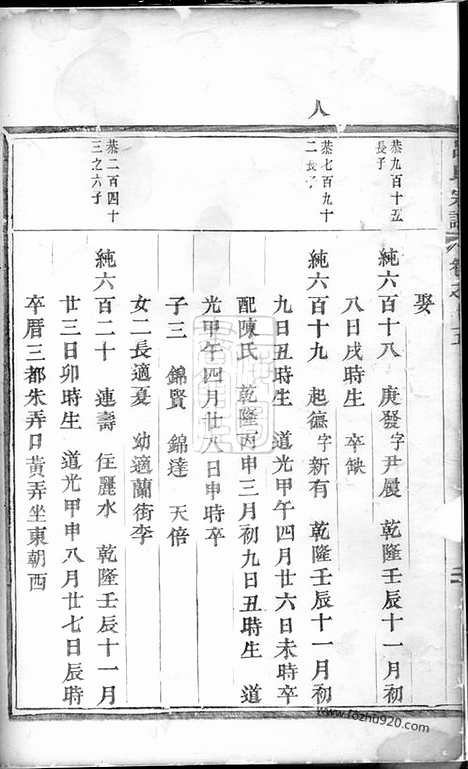 娶
恭九百十五
長子
純六百十八 庚發字尹屐 乾隆壬辰十一月初
八日戌時生 卒缺
恭七百九十
二長子
純六百十九 起德字新有 乾隆壬辰十一月初
九日丑時生 道光甲午四月廿六日未時卒
配陳氏 乾隆丙申三月初九日丑時生 道
光甲午四月廿八日申時卒
子三 錦賢 錦達 天倍
女二長適夏 幼適蘭街李
恭二百四十
三之六子
純六百二十 連壽 住麗水 乾隆壬辰十一月
廿三日卯時生 道光甲申八月廿七日辰時
卒厝三都朱弄口黃弄坐東朝西
www.fozhu920.com